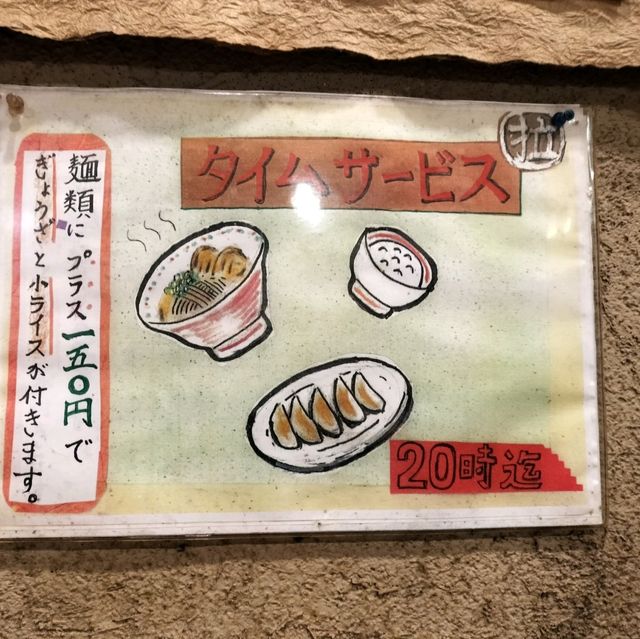 拉
タイムサービス
麺類にプラス一五〇円で
ぎょうざと小ライスが付きます。
20時迄